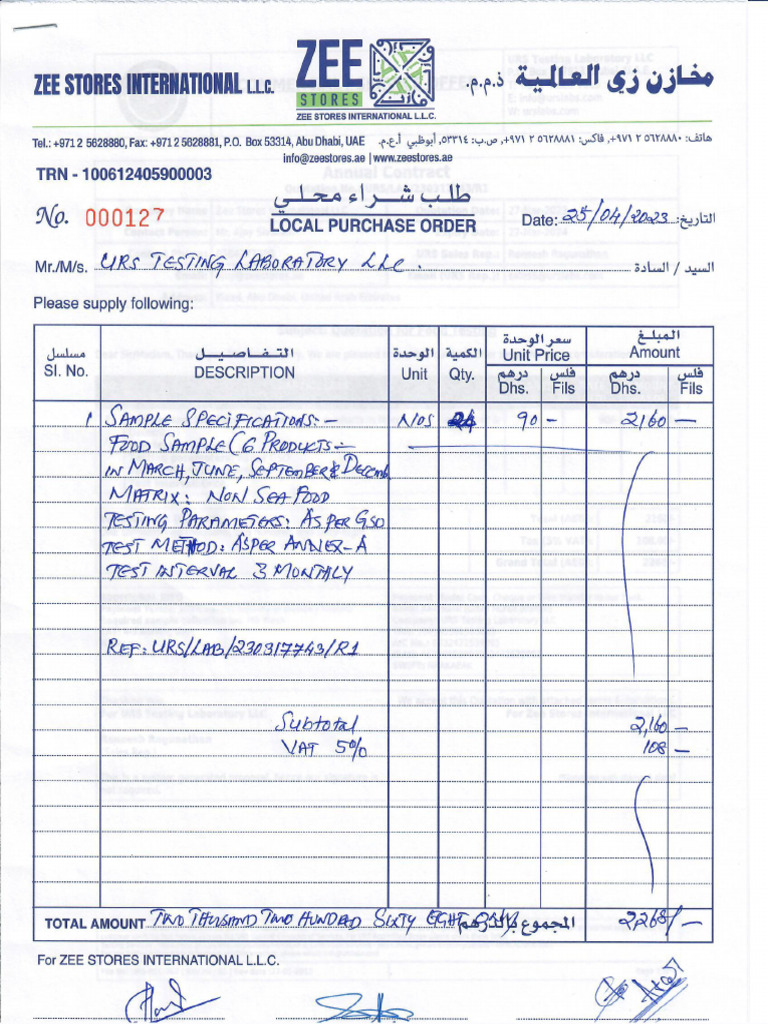 ZEE STORES INTERNATIONAL L.L.C.
ZEE
STORES
ZEE STORES INTERNATIONAL L.L.C.
مخازن زي العالمية ذ.م.م.
Tel.: +971 2 5628880, Fax: +971 2 5628881, P.O. Box 53314, Abu Dhabi, UAE
هاتف: ٥٦٢٨٨٨٠ ٢ ٩٧١+, فاكس: ٥٦٢٨٨٨١ ٢ ٩٧١+, ص.ب: ٥٣٣١٤, أبوظبي أ.ع.م.
info@zeestores.ae | www.zeestores.ae
TRN - 100612405900003
طلب شراء محلي
No. 000127
LOCAL PURCHASE ORDER
Date: 25/04/2023 التاريخ:
Mr./M/s. URS TESTING LABORATORY LLC. السيد / السادة
Please supply following:
مسلسل التفاصيل الوحدة الكمية سعر الوحدة المبلغ
Sl. No. DESCRIPTION Unit Qty. Unit Price Amount
درهم فلس درهم فلس
Dhs. Fils Dhs. Fils
1 SAMPLE SPECIFICATIONS:- NOS 24 90 - 2160 -
FOOD SAMPLE (6 PRODUCTS:-
IN MARCH, JUNE, SEPTEMBER & Decemb
MATRIX: NON SEA FOOD
TESTING PARAMETERS: AS PER GSO
TEST METHOD: AS PER ANNEX-A
TEST INTERVAL 3 MONTHLY
REF: URS/LAB/230317743/R1
Subtotal 2,160 -
VAT 5% 108 -
TOTAL AMOUNT TWO THOUSAND TWO HUNDRED SIXTY EIGHT المجموع بالدرهم 2268/-
For ZEE STORES INTERNATIONAL L.L.C.